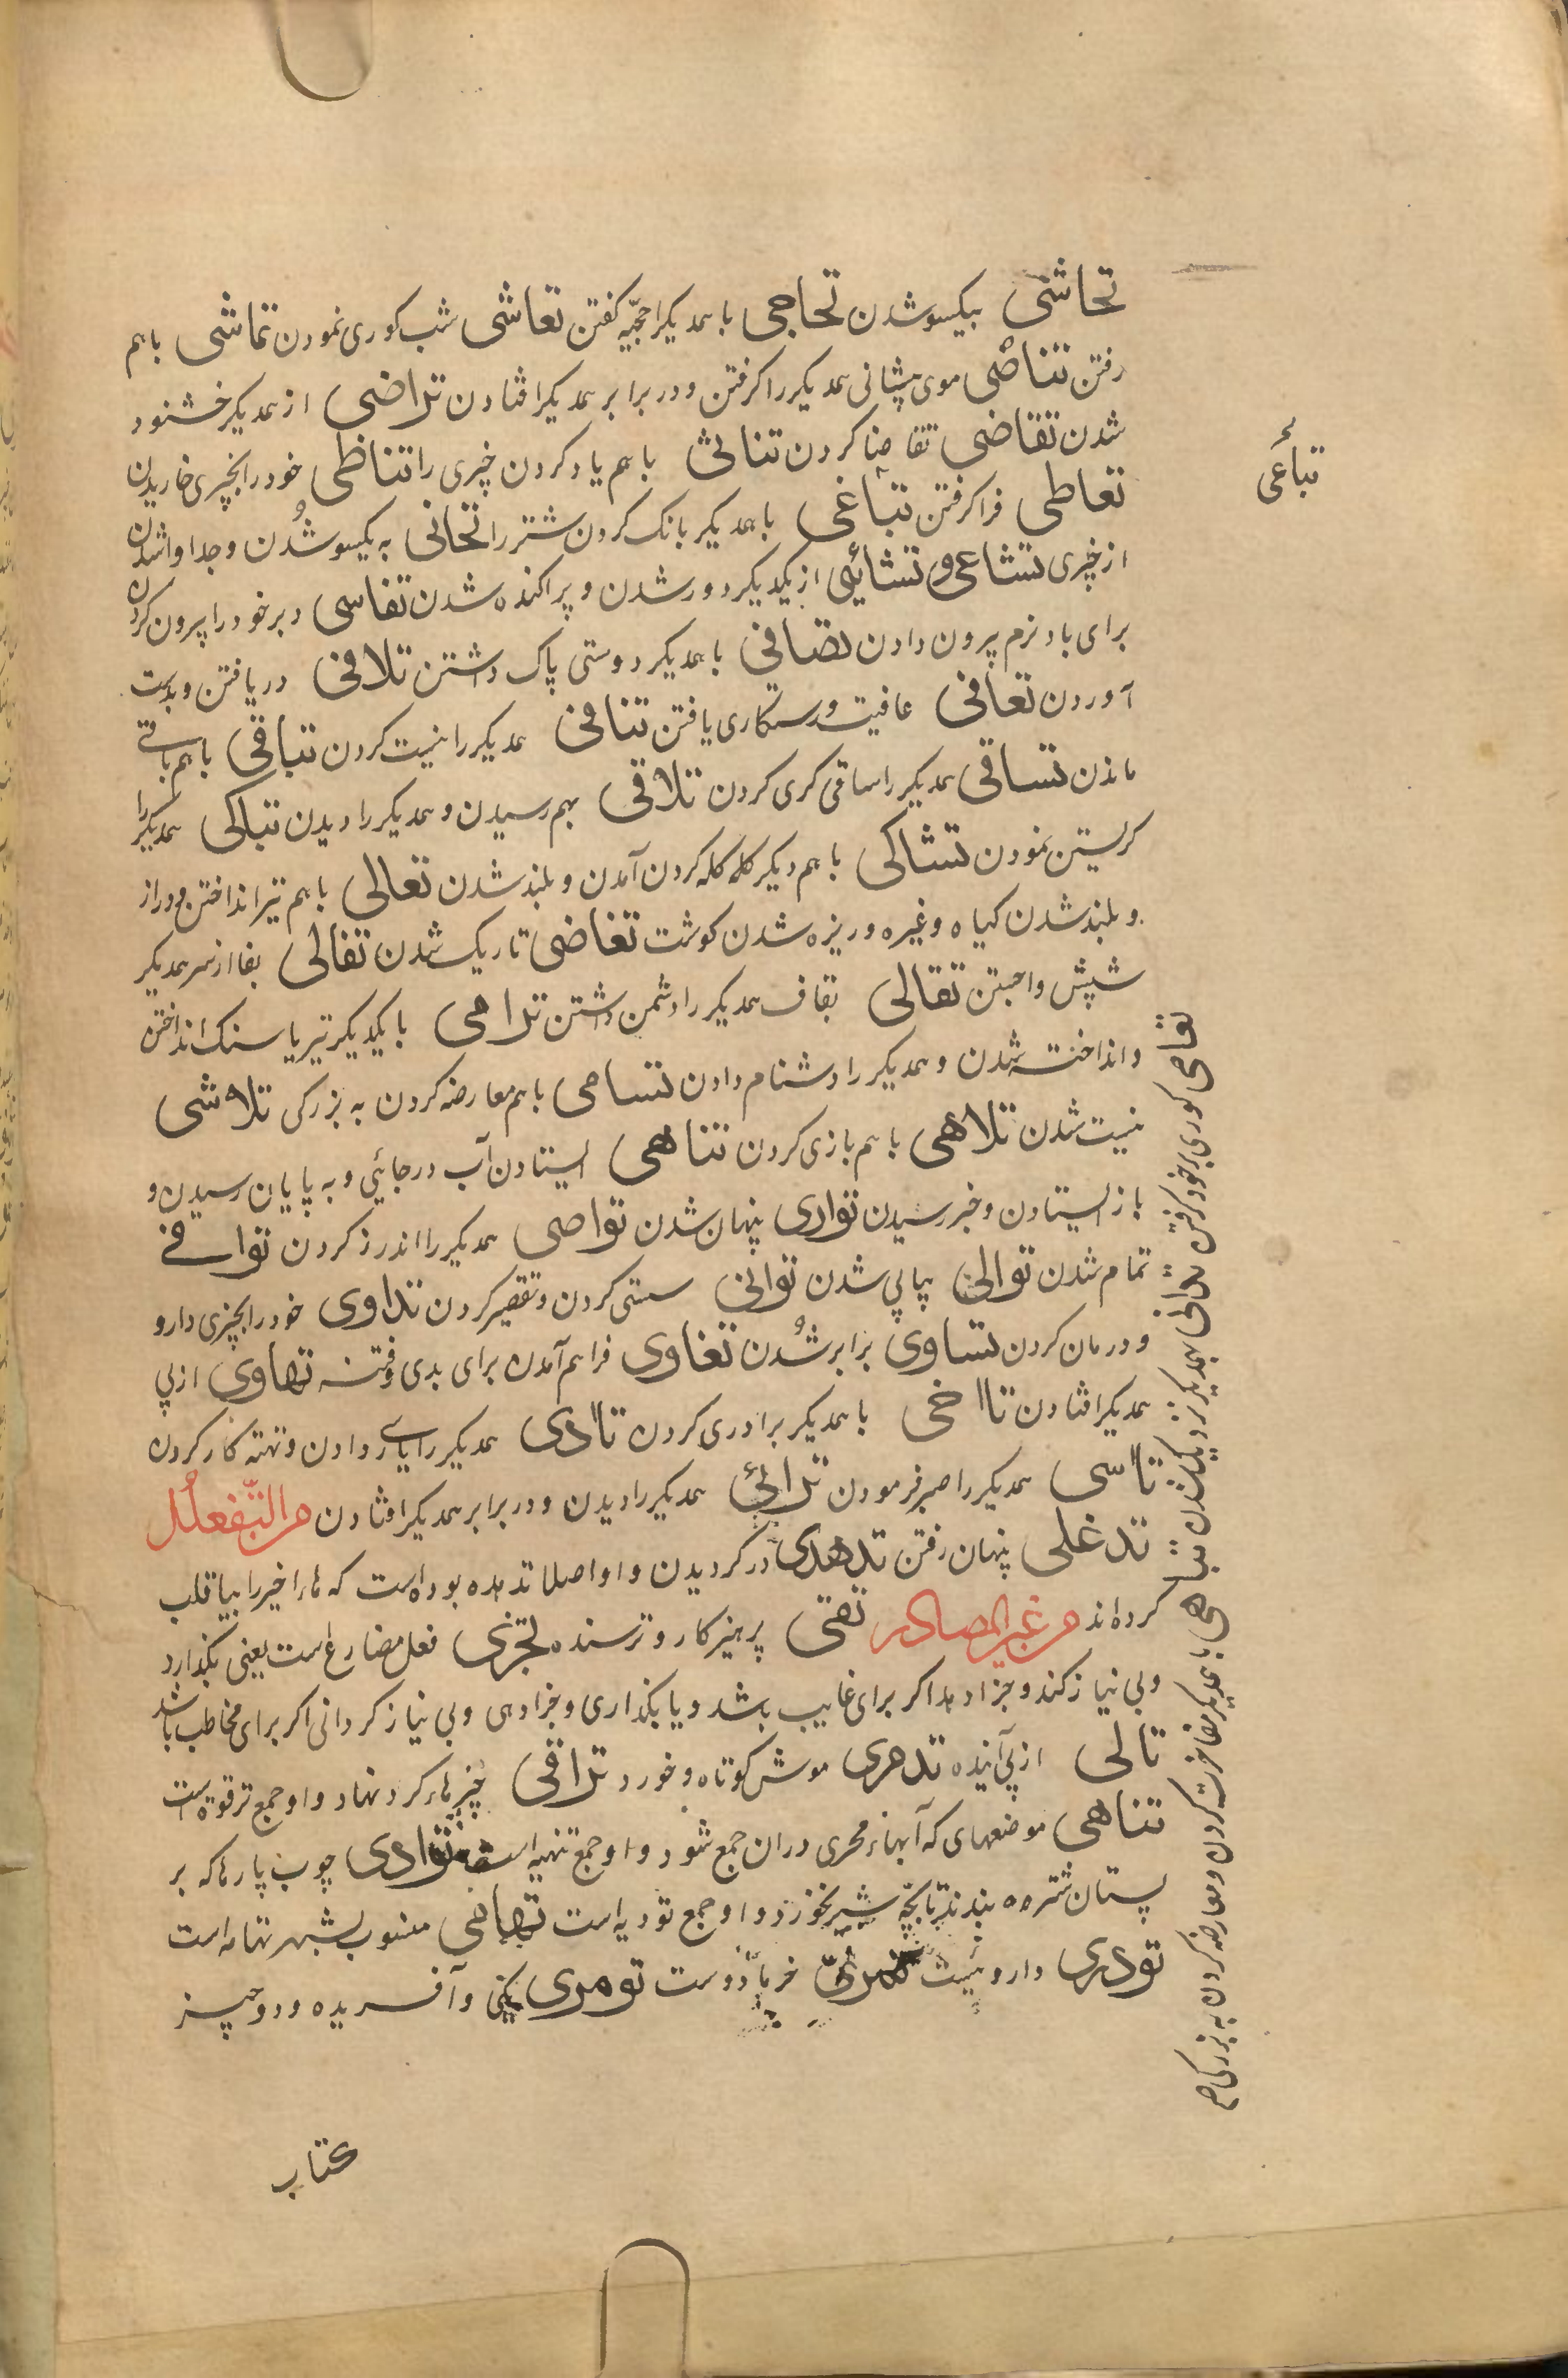 تحاشی بیکسو شدن تحاجی با همدیکر احجیّه کفتن تعاشی شب کوری نمودن تماشی باهم
رفتن تناصی موی پیشانی همدیکر را کرفتن و در برابر همدیکر افتادن تراضی از همدیکر خشنود
شدن تقاضی تقاضا کردن تناثی باهم یاد کردن چیزی را تناظی خود را بچیزی خاریدن
تعاطی فرا کرفتن تباغی با همدیکر بانک کردن شتر را تحانی به یکسو شدن و جدا واشدن
از چیزی تشاعی و تشائی از یکدیکر دور شدن و پراکنده شدن تفاسی دبر خود را بیرون کردن
برای باد نرم بیرون دادن تصافی با همدیکر دوستی پاک داشتن تلافی دریافتن و بدست
آوردن تعافی عافیت و رستکاری یافتن تنافی همدیکر را نیست کردن تباقی باهم باقی
ماندن تساقی همدیکر را ساقی کری کردن تلاقی بهم رسیدن و همدیکر را دیدن تباکی همدیکر را
کریستن نمودن تشاکی باهم دیکر کله کله کردن آمدن و بلند شدن تعالی باهم تیر انداختن و دراز
و بلند شدن کیاه و غیره و ریزه شدن کوشت تغاضی تاریک شدن تفالی بفا از سر همدیکر
شپش واجستن تقالی بقاف همدیکر را دشمن داشتن ترامی با یکدیکر تیر یا سنک انداختن
و انداخته شدن و همدیکر را دشنام دادن تسامی باهم معارضه کردن به بزرکی تلاشی
نیست شدن تلاهی باهم بازی کردن تناهی ایستادن آب در جائی و به پایان رسیدن و
باز ایستادن و خبر رسیدن تواری پنهان شدن تواصی همدیکر را اندرز کردن توافی
تمام شدن توالی پیاپی شدن توانی سستی کردن و تقصیر کردن تداوی خود را بچیزی دارو
و درمان کردن تساوی برابر شدن تغاوی فراهم آمدن برای بدی و فتنه تهاوی از پی
همدیکر افتادن تاآخی با همدیکر برادری کردن تاآدی همدیکر را یاری دادن و تهیه کار کردن
تاآسی همدیکر را صبر فرمودن ترائی همدیکر را دیدن و در برابر همدیکر افتادن من التّفعلُل
تدغلی پنهان رفتن تدهدی در کردیدن و او اصلا تدهده بوده است که هاء اخیر را بیا قلب
کرده اند من غیر المصادر تقی پرهیزکار و ترسنده تجزی فعل مضارع است یعنی بکذارد
و بی نیاز کند و جزا دهد اکر برای غایب باشد و یا بکذاری و جزا دهی و بی نیاز کردانی اکر برای مخاطب باشد
تالی از پی آینده تدمری موش کوتاه و خورد تراقی چنبرهاء کرد نهاد و او جمع ترقوه است
تناهی موضعهای که آبهاء محری دران جمع شود و او جمع تنهیه است توادی چوب پارها که بر
پستان شتر ماده بندند تا بچّه شیر نخورد و او جمع تودیه است تهامی منسوب بشهر تهامه است
تودری داروئیست خرما دوست تومری یکی و آفریده و دو چیز
کتاب
تباغی
تعامی کوری بر خود کرفتن تدانی بهمدیکر نزدیک شدن تباهی با همدیکر مفاخرت کردن و معارضه کردن به بزرکی صح